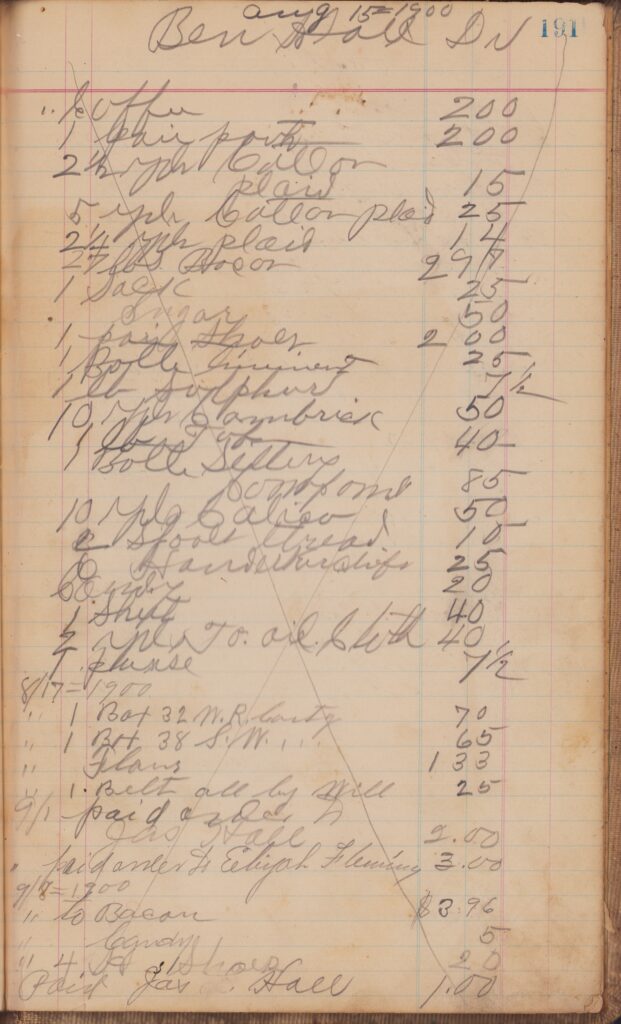 Aug 15 = 1900
Ben Hall Dr 191
" Koffee 200
1 pair pants 200
2½ yds Cotton
plaid 15
5 yds Cotton plaid 25
2¼ yds plaid 14
27 lbs Bacon 297
1 Sack 25
Sugar 50
1 pair Shoes 200
1 Bottle liniment 25
1 lb Sulphur 7½
10 yds Cambrick 50
1 40
1 Bottle
85
10 yds Calico 50
2 Spools thread 10
Handkerchiefs 25
Candy 20
1 Shirt 40
2 yds T. oil Cloth 40
1 7½
8/17 = 1900
" 1 Box 32 W.R. Cartg 70
" 1 Box 38 S.W. " " 65
" Flour 133
" 1 Belt all by Will 25
9/1 paid order to
Jas Hall 2.00
" paid order to Elijah Fleming 3.00
9/8 = 1900
" to Bacon $3.96
" Candy 5
" 4 20
Paid Jas Hall 1.00